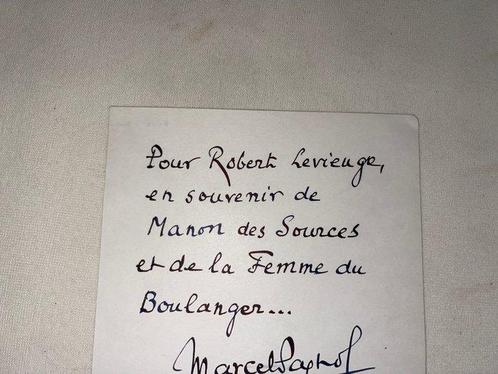 Pour Robert Levieuge,
en souvenir de
Manon des Sources
et de la Femme du
Boulanger...
Marcel Pagnol